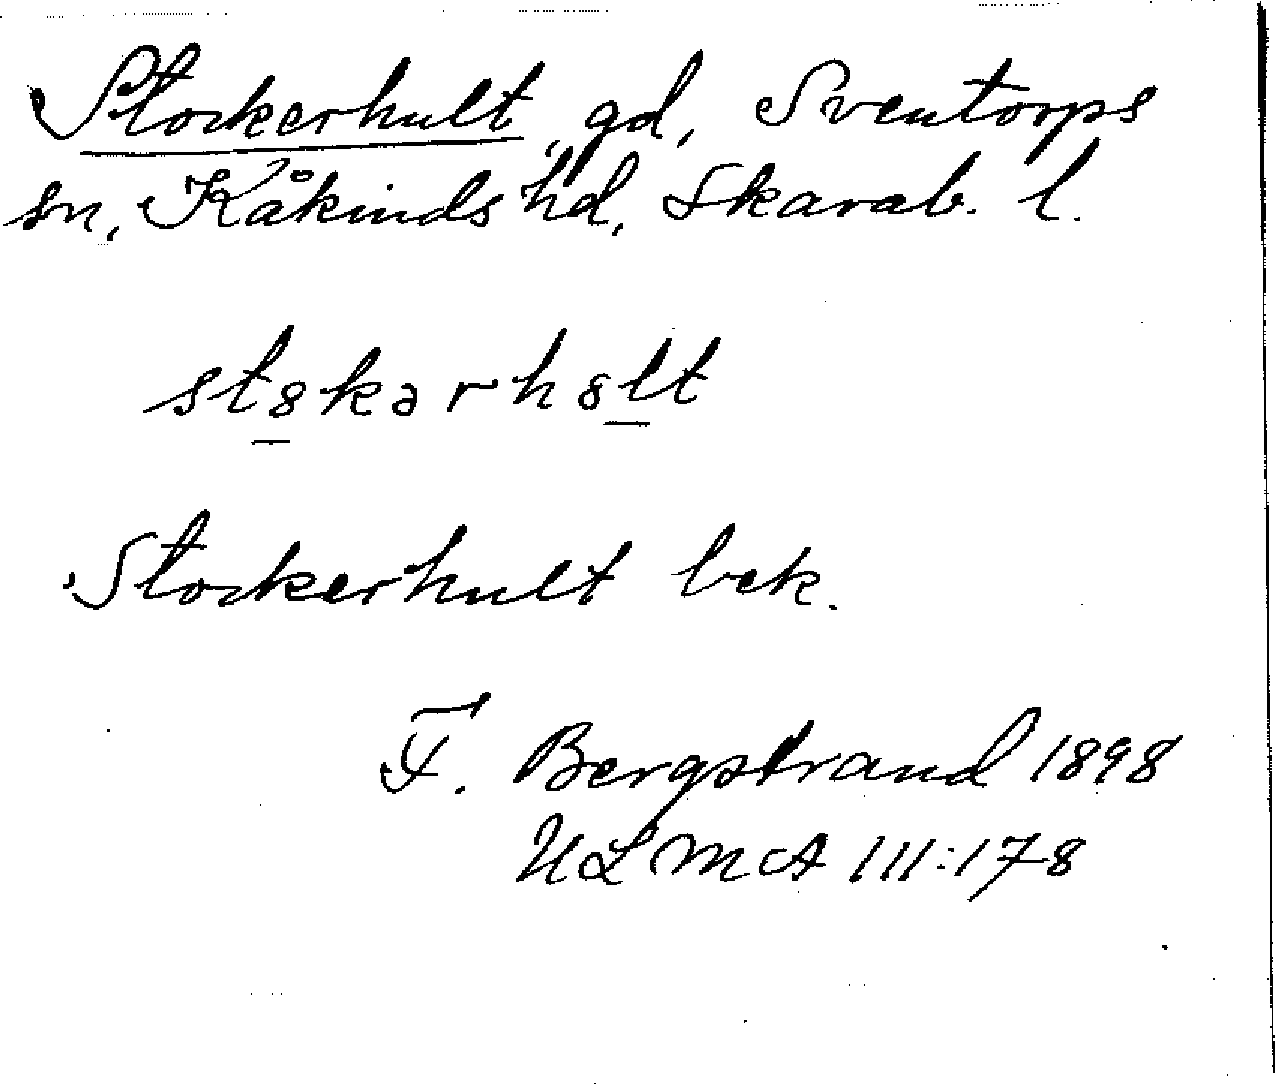 Stockerhult, gd, Sventorps
sn, Kåkinds hd, Skarab. l.
st8kərh8lt
Stockerhult bek.
F. Bergstrand 1898
ULMA 111:178